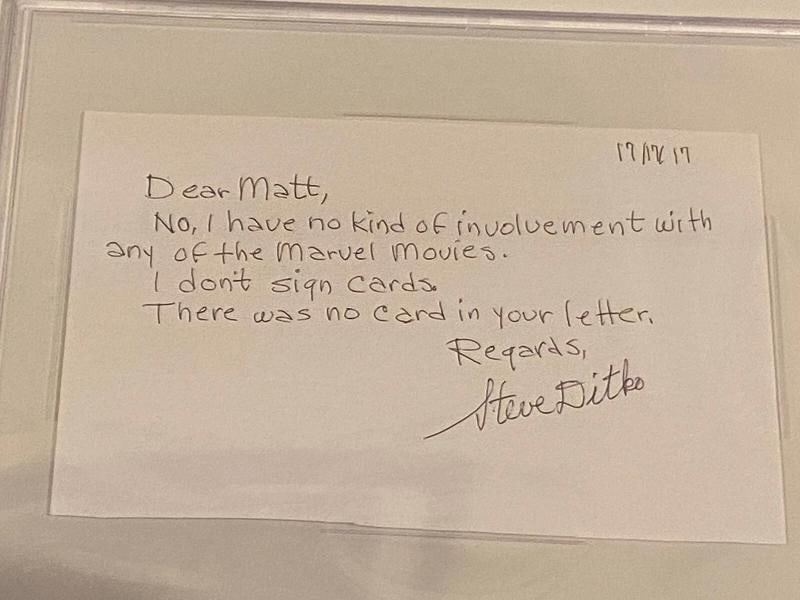 Dear Matt,
No, I have no kind of involvement with
any of the Marvel movies.
I don't sign cards.
There was no card in your letter.
Regards,
Steve Ditko